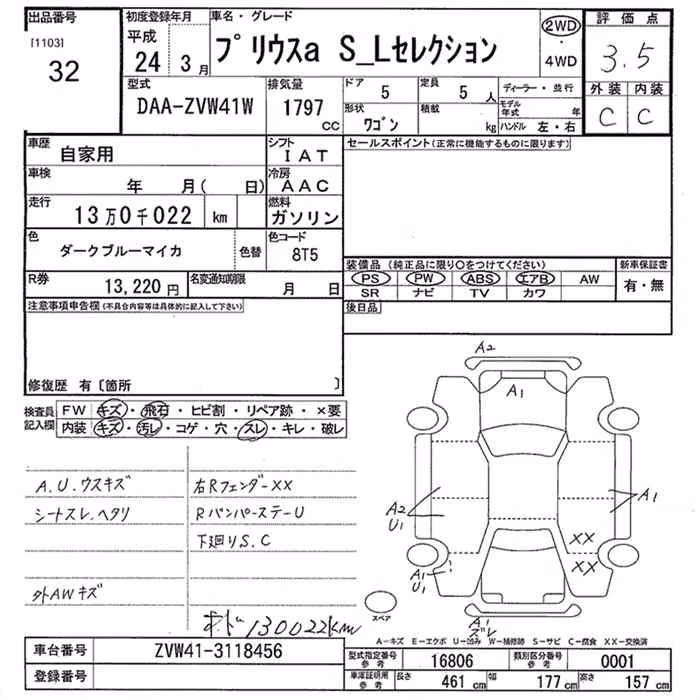 出品番号
[1103]
32
初度登録年月
平成
24 3月
車名・グレード
プリウスa S_Lセレクション
2WD
・
4WD
評価点
3.5
外装 内装
C C
型式
DAA-ZVW41W
排気量
1797
CC
ドア
5
定員
5 人
形状
ワゴン
積載
kg
ディーラー・並行
モデル年式 年
ハンドル 左・右
車歴
自家用
シフト
IAT
車検
年 月( 日)
冷房
AAC
走行
13万0千022 km
燃料
ガソリン
色
ダークブルーマイカ
色替
色コード
8T5
R券
13,220円
名変通知期限
月 日
セールスポイント(正常に機能するものに限ります)
装備品 (純正品に限り○をつけてください)
PS PW ABS エアB AW
SR ナビ TV カワ
新車保証書
有・無
後日品
注意事項申告欄(不具合内容等は具体的に記入して下さい)
修復歴 有〔箇所 〕
検査員記入欄
FW キズ・飛石・ヒビ割・リペア跡・×要
内装 キズ・汚レ・コゲ・穴・スレ・キレ・破レ
A.U.ウスキズ
シートスレ.ヘタリ
外AWキズ
右RフェンダーXX
RバンパーステーU
下廻りS.C
オド 130022km
A2
A1
A2
U1
A1
XX
XX
A1
U1
A1
ズレ
スペア
A-キズ E-エクボ U-凹み W-補修跡 S-サビ C-腐食 XX-交換済
車台番号
ZVW41-3118456
登録番号
型式指定番号
参考
16806
類別区分番号
参考
0001
車庫証明用
参考
長さ
461 cm
幅
177 cm
高さ
157 cm